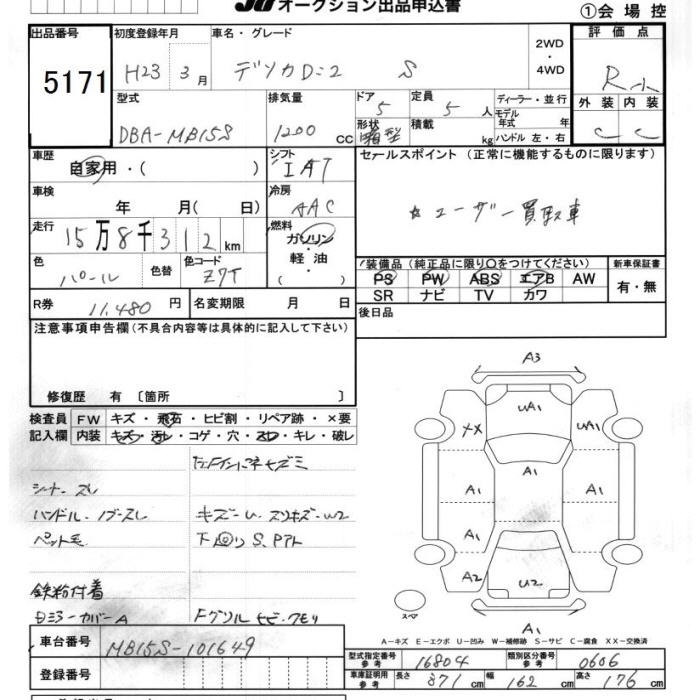 オークション出品申込書
①会場控
出品番号
5171
初度登録年月
H23 3月
車名・グレード
デリカD:2 S
2WD
・
4WD
評価点
R
外装 内装
C C
型式
DBA-MB15S
排気量
1200 cc
ドア
5
定員
5 人
形状
箱型
積載
kg
ディーラー・並行
モデル
年式 年
ハンドル 左・右
車歴
自家用・( )
シフト
IAT
セールスポイント (正常に機能するものに限ります)
☆ユーザー買取車
車検
年 月( 日)
冷房
AAC
走行
15万8千312km
燃料
ガソリン
軽油
( )
色
パール
色替
色コード
Z7T
装備品 (純正品に限り○をつけてください)
PS PW ABS エアB AW
SR ナビ TV カワ
新車保証書
有・無
R券
11,480 円
名変期限 月 日
後日品
注意事項申告欄(不具合内容等は具体的に記入して下さい)
修復歴 有〔箇所 〕
検査員
記入欄
FW キズ・飛石・ヒビ割・リペア跡・×要
内装 キズ・汚レ・コゲ・穴・スレ・キレ・破レ
シート スレ
ハンドル・ノブスレ
キズ・U・スリキズ・W2
ペット毛
下回りS,Pアト
鉄粉付着
車台番号
MB15S-101649
登録番号
A3
UA1
XX
UA1
A1
A1
A1
A1
A2
U2
A1
スペア
A-キズ E-エクボ U-凹み W-補修跡 S-サビ C-腐食 XX-交換済
型式指定番号
参考
16804
類別区分番号
参考
0606
車庫証明用
参考
長さ 371 cm
幅 162 cm
高さ 176 cm